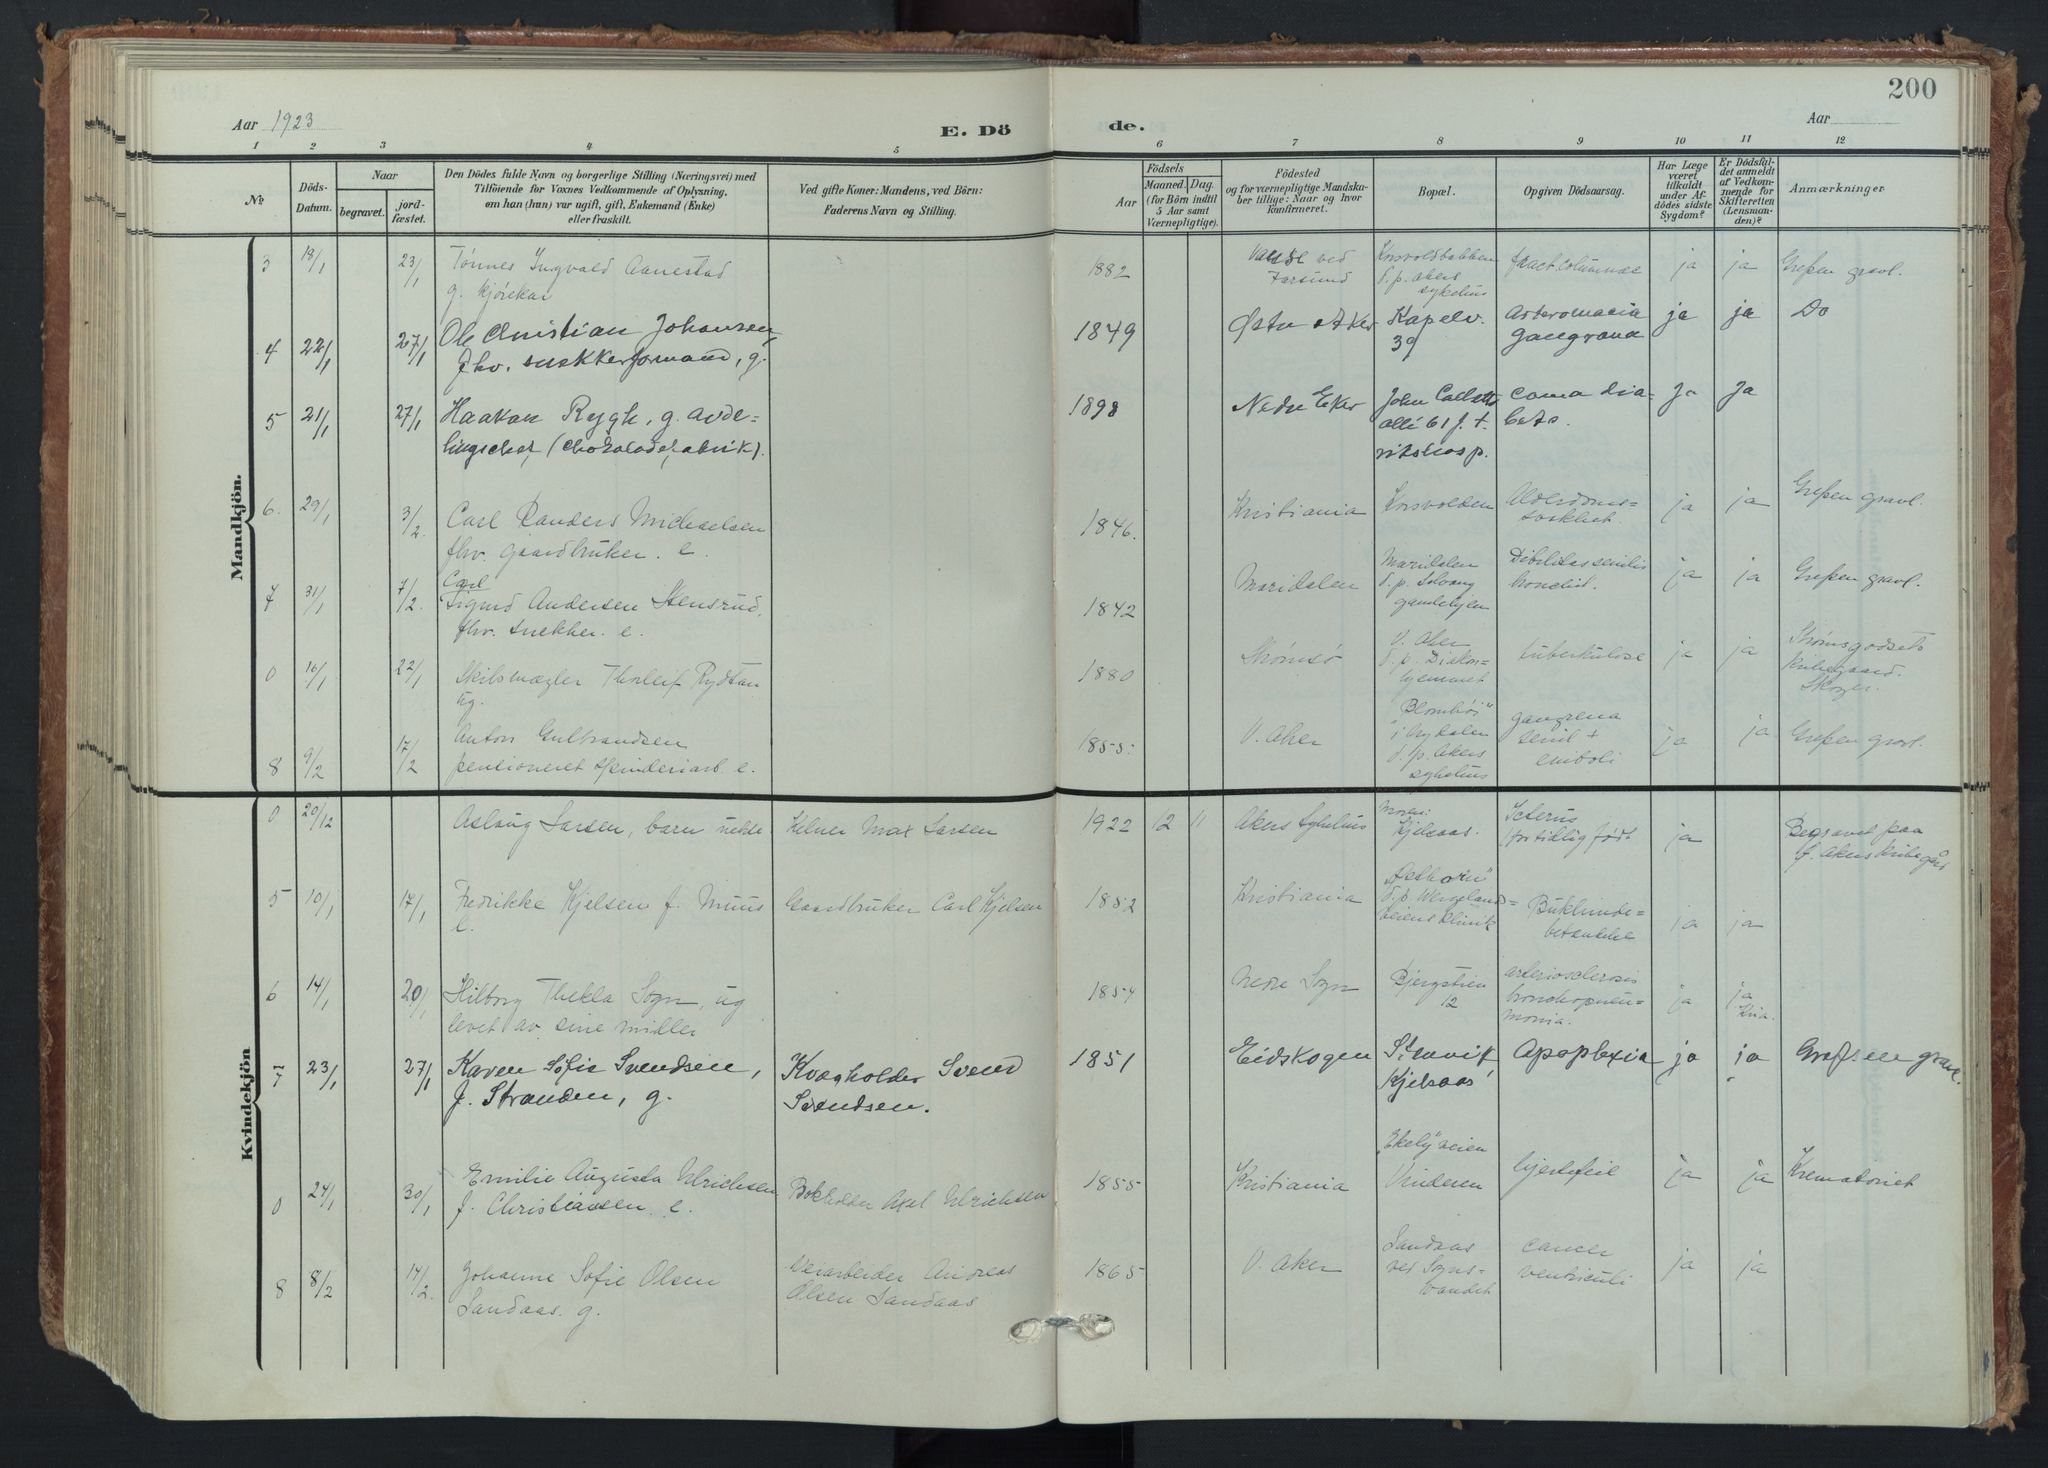 200
Aar 1923
E. Dö
de.
Aar
1 2 3 4 5 6 7 8 9 10 11 12
№
Döds-
Datum.
Naar
begravet.
jord-
fæstet.
Den Dödes fulde Navn og borgerlige Stilling (Næringsvei) med
Tilföiende for Voxnes Vedkommende af Oplysning,
om han (hun) var ugift, gift, Enkemand (Enke)
eller fraskilt.
Ved gifte Koner: Mandens, ved Börn:
Faderens Navn og Stilling.
Födsels
Aar
Maaned. Dag.
(for Börn indtil
5 Aar samt
Værnepligtige).
Födested
og for værnepligtige Mandska-
ber tillige: Naar og hvor
konfirmeret.
Bopæl.
Opgiven Dödsaarsag.
Har Læge
været
tilkaldt
under Af-
dødes sidste
Sygdom?
Er Dödsfal-
det anmeldt
af Vedkom-
mende for
Skifteretten
(Lensman-
den)?
Anmærkninger
Mandkjön.
3 18/1 23/1 Tønnes Ingvald Aanestad
g. kjørekar
1882 Vanse ved
Farsund
Korsvoldbakken
d. p. Akers
sykehus
fract. columnae ja ja Grefsen gravl.
4 22/1 27/1 Ole Christian Johansen,
fhv. snekkerformand, g.
1849 Østre Aker Kapelv.
39
Gangræna ja ja Do
5 21/1 27/1 Haakon Rygh, g. avde-
lingschef, (chokoladefabrik).
1898 Nedre Eker John Colletts
allé 61 f. t.
coma dia-
bets. Ja Ja
6. 29/1 3/2. Carl Randers Michaelsen
fhv. gaardbruker. e.
1846. Kristiania Korsvolden Alderdoms-
svakhet. ja ja Grefsen gravl.
7 31/1 7/2. Carl
Sigurd Andersen Stensrud,
fhv. snekker. e.
1842 Maridalen Maridalen
d. p. Solvang
gamlehjem
Debilitas senilis
bronchit. ja ja Grefsen gravl.
0 16/1 22/1 Skibsmægler Thorleif Rydtan
ug.
1880 Strømsø V. Aker
d. p. Diakon-
hjemmet
tuberkulose ja ja Strømsgodsets
kirkegaard.
Skoger.
8 9/2 17/2 Anton Gulbrandsen
pensioneret spinderiarb. e.
1855 V. Aker „Blomhöi"
i Nydalen
d. p. Akers
sykehus
gangrena
senil +
emboli ja ja Grefsen gravl.
Kvindekjön
0 20/12 Aslaug Larsen, barn Kelner Max Larsen
1922 12 11 Akers Sykehus
Kjelsaas.
Icterus
(for tidlig født ja Begravet paa
Akers kirkegård
5 10/1 17/1 Fredrikke Kjelsen f. Muus
e.
Gaardbruker Carl Kjelsen
1852 Kristiania
d. p. Wergeland-
veiens Klinik
Bukhinde-
betændelse ja ja
6 14/1 20/1 Hilborg Thekla Sogn, ug
levet av sine midler
1854 Nedre Sogn Bjergstien
12
arteriosclerosis
bronchopneu-
monia. ja ja
Kria.
7 23/1 27/1 Karen Sofie Svendsen,
f. Stranden, g.
Kvægholder Svend
Svendsen.
1851 Eidskogen
Kjelsaas
Apoplexia ja ja Grefsen gravl.
0 24/1 30/1 Emilie Augusta Ulrichsen
f. Christiansen. e.
Bokholder Axel Ulrichsen
1855 Kristiania „Ekely" veien
Vinderen
hjertefeil ja ja Krematoriet
8 8/2 14/2. Johanne Sofie Olsen
Sandaas. g.
Veiarbeider Andreas
Olsen Sandaas
1865 V. Aker Sandaas
ved Sogns-
vandet
cancer
ventriculi ja ja